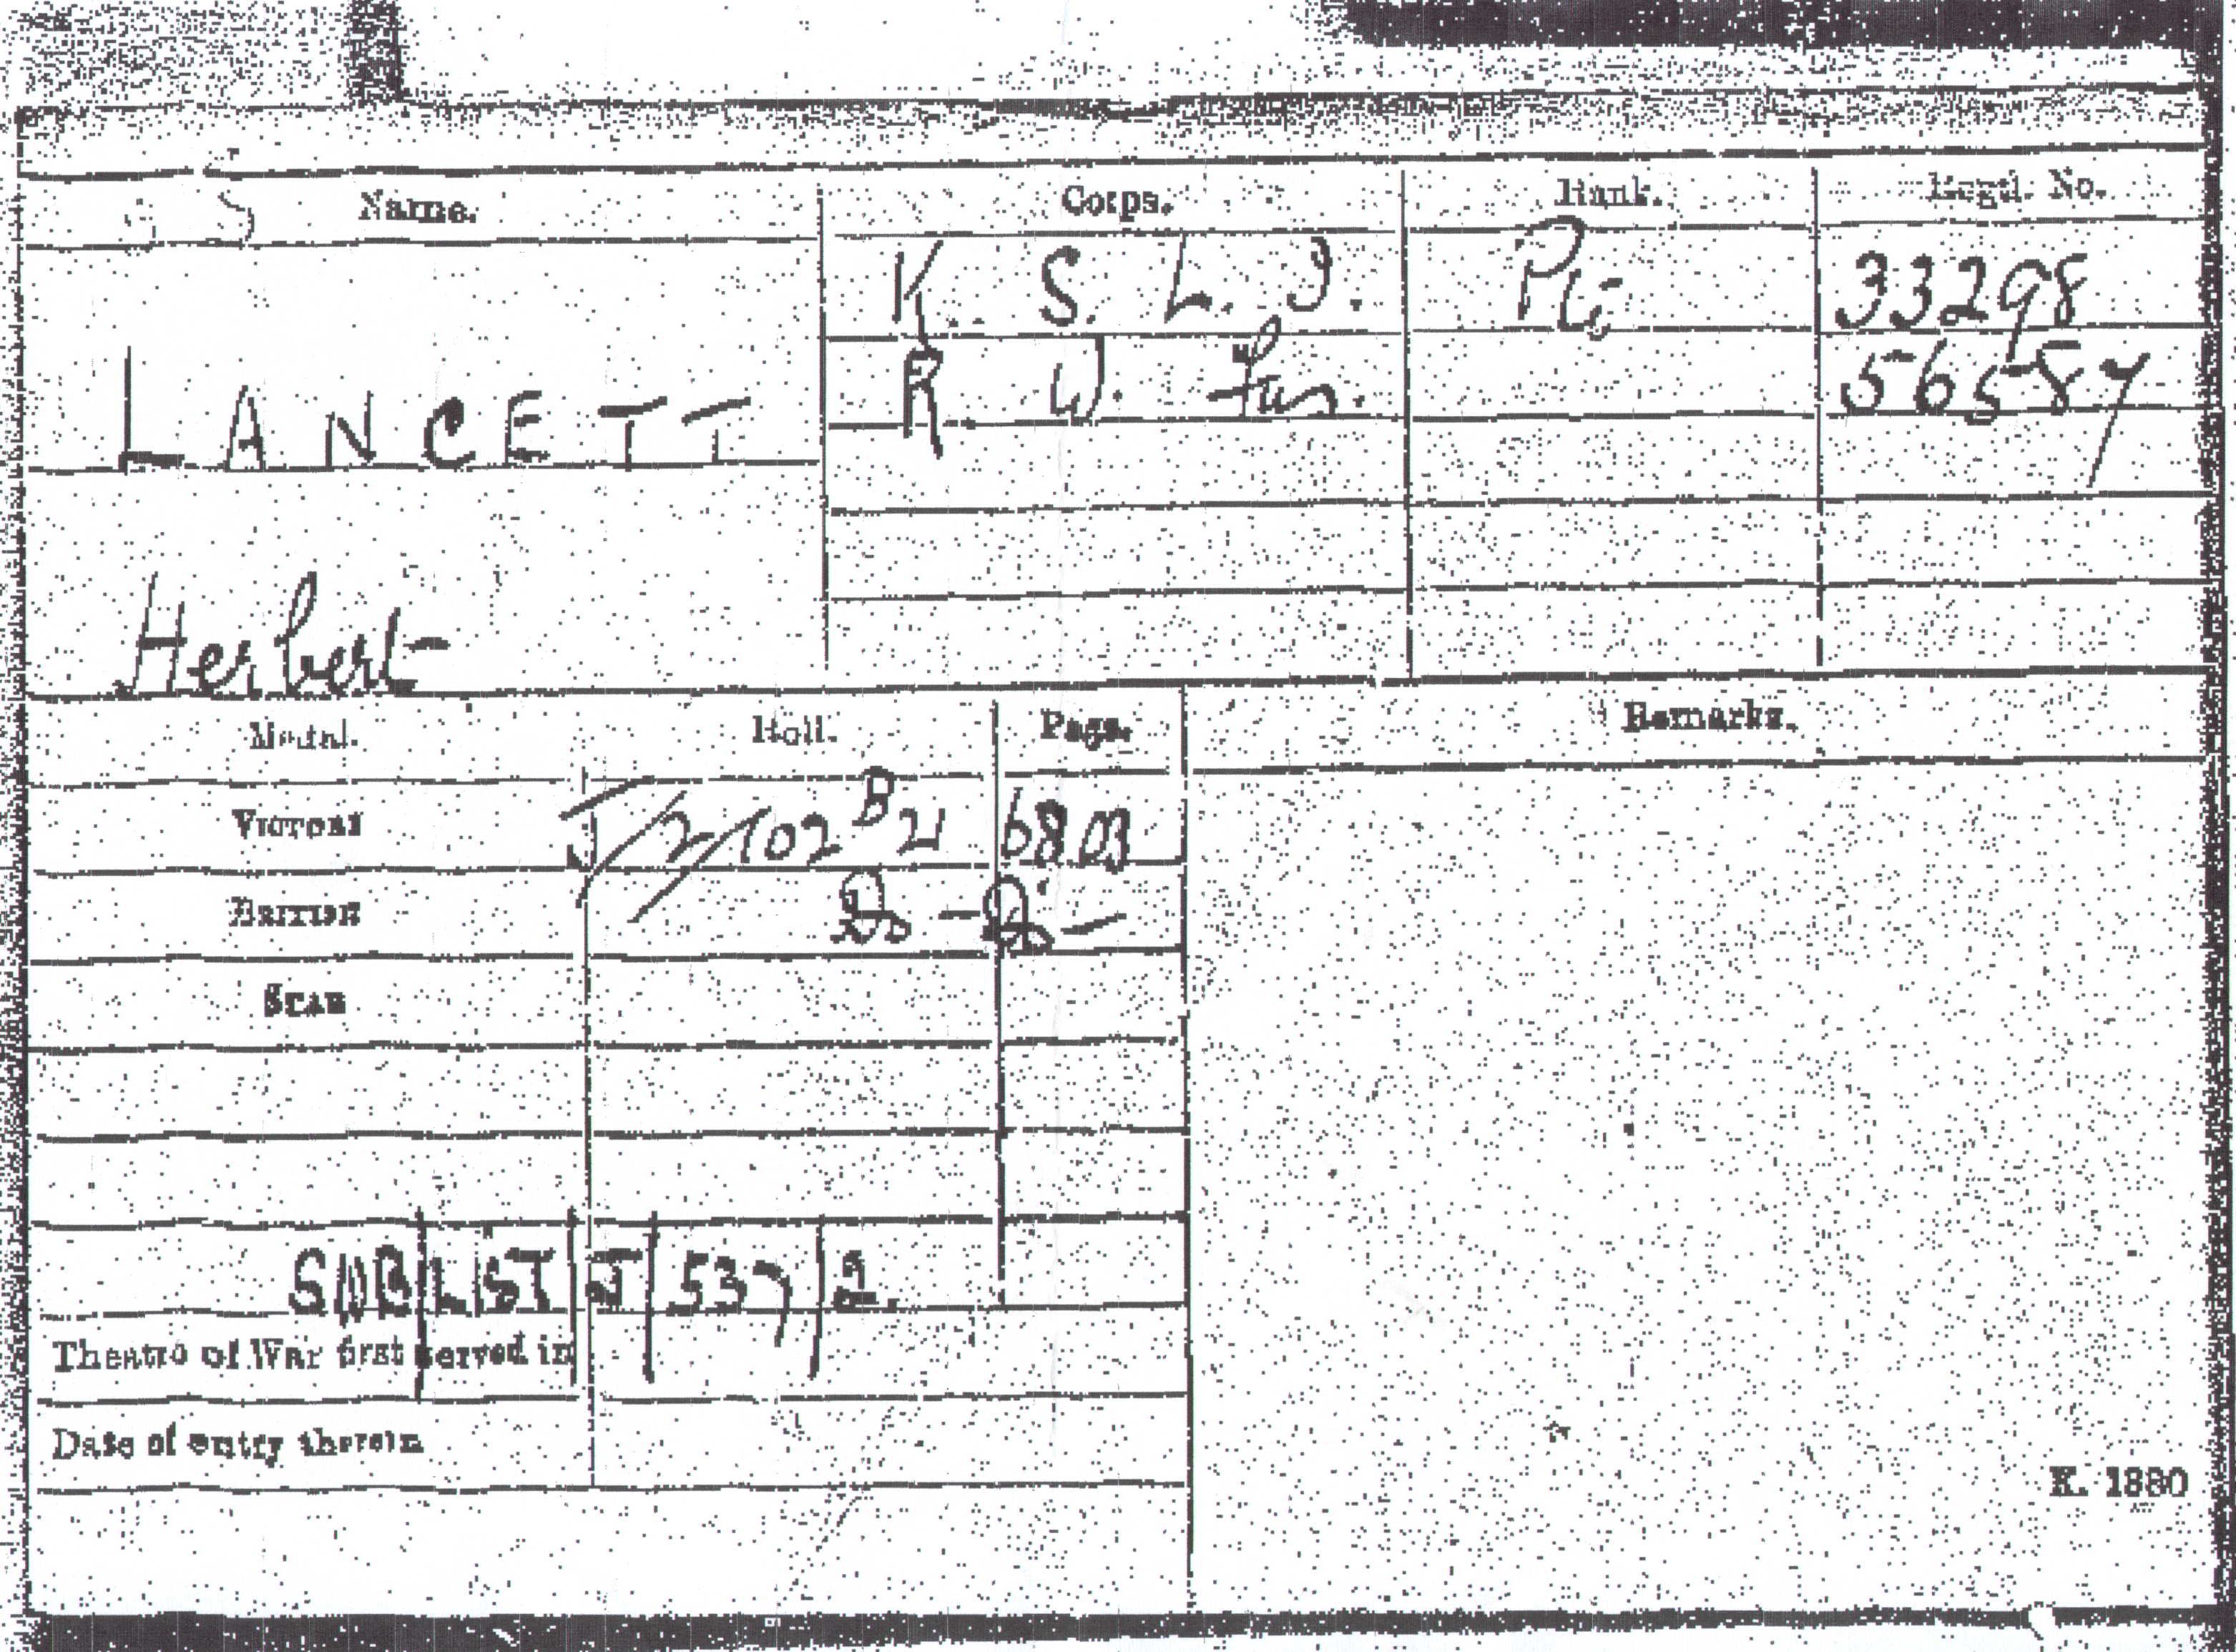 Name. Corps. Rank. Regtl. No.
K. S. L. I. Pte 33298
LANCETT R. W. Fus. 56587
Herbert
Medal. Roll. Page. Remarks.
VICTORY J/2/102 B21 6803
BRITISH Do - Do -
STAR
SWB LIST J 537 2.
Theatre of War first served in
Date of entry therein
K. 1380